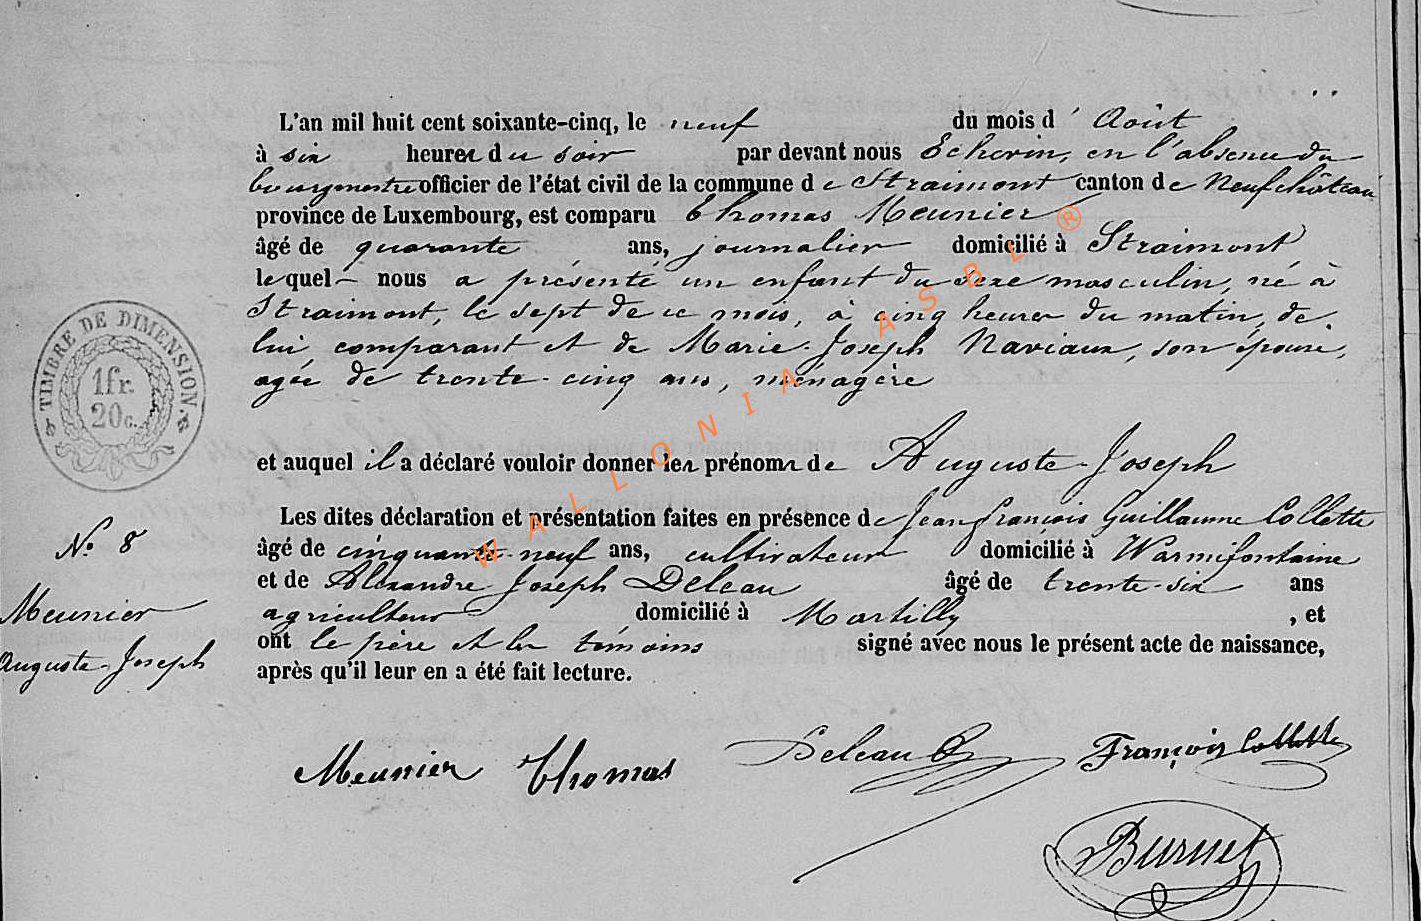 L'an mil huit cent soixante-cinq, le neuf du mois d' Août
à six heures du soir par devant nous Echevin, en l'absence du
bourgmestre officier de l'état civil de la commune de Straimont canton de Neufchâteau
province de Luxembourg, est comparu Thomas Meunier
âgé de quarante ans, journalier domicilié à Straimont
lequel nous a présenté un enfant du sexe masculin, né à
Straimont, le sept de ce mois, à cinq heures du matin, de
lui, comparant et de Marie-Joseph Naviaux, son épouse,
agée de trente-cinq ans, ménagère
et auquel il a déclaré vouloir donner les prénoms de Auguste-Joseph
Les dites déclaration et présentation faites en présence de Jean françois Guillaume Collette
âgé de cinquante-neuf ans, cultivateur domicilié à Warmifontaine
et de Alexandre Joseph Deleau âgé de trente-six ans
agriculteur domicilié à Martilly , et
ont le père et les témoins signé avec nous le présent acte de naissance,
après qu'il leur en a été fait lecture.
TIMBRE DE DIMENSION
1fr.
20c.
No. 8
Meunier
Auguste-Joseph
Meunier Thomas
Deleau
François Collette
Burnet
WALLONIA ASBL ®